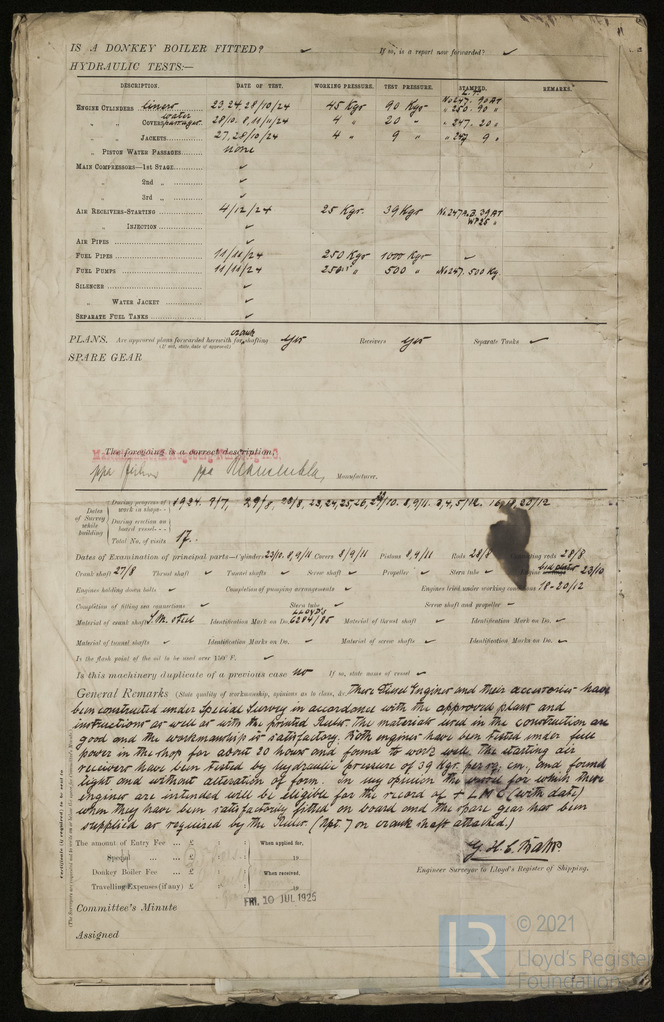 IS A DONKEY BOILER FITTED? ✓ If so, is a report now forwarded? ✓
HYDRAULIC TESTS:—
DESCRIPTION. DATE OF TEST. WORKING PRESSURE. TEST PRESSURE. STAMPED. REMARKS.
ENGINE CYLINDERS liners 23, 24, 28/10/24 45 Kgr 90 Kgr No 247. 90 AT
" 250. 90 "
" " COVERS water passages 28/10. 8, 11/11/24 4 " 20 " " 247. 20 "
" " JACKETS 27, 28/10/24 4 " 9 " " 247. 9 "
" PISTON WATER PASSAGES none
MAIN COMPRESSORS—1st STAGE ✓
" 2nd " ✓
" 3rd " ✓
AIR RECEIVERS—STARTING 4/12/24 25 Kgr. 39 Kgr No 247 39 AT
WP 25 "
" INJECTION ✓
AIR PIPES ✓
FUEL PIPES 11/11/24 250 Kgr 1000 Kgr ✓
FUEL PUMPS 11/11/24 250 " 500 " No 247. 500 Kg.
SILENCER ✓
" WATER JACKET ✓
SEPARATE FUEL TANKS ✓
PLANS. Are approved plans forwarded herewith for crank shafting yes Receivers yes Separate Tanks ✓
(If not, state date of approval)
SPARE GEAR
The foregoing is a correct description,
ppa ppa Manufacturer.
Dates of Survey while building
During progress of work in shops - - 1924. 9/7, 29/8, 23, 24, 25, 26, 8, 9/11. 3, 4, 5/12, 20/12
During erection on board vessel - -
Total No. of visits 17.
Dates of Examination of principal parts—Cylinders 23/10. 8, 9/11 Covers 8/9/11 Pistons 8, 9/11 Rods 28/8 Connecting rods 28/8
Crank shaft 27/8 Thrust shaft ✓ Tunnel shafts ✓ Screw shaft ✓ Propeller ✓ Stern tube ✓ Engine bed plate 23/10
Engines holding down bolts ✓ Completion of pumping arrangements ✓ Engines tried under working conditions 18-20/12
Completion of fitting sea connections ✓ Stern tube ✓ Screw shaft and propeller ✓
Material of crank shaft S.M. steel Identification Mark on Do. LLOYD'S 6284/85 Material of thrust shaft ✓ Identification Mark on Do. ✓
Material of tunnel shafts ✓ Identification Marks on Do. ✓ Material of screw shafts ✓ Identification Marks on Do. ✓
Is the flash point of the oil to be used over 150° F. ✓
Is this machinery duplicate of a previous case no If so, state name of vessel ✓
General Remarks (State quality of workmanship, opinions as to class, &c. These Diesel Engines and their accessories have
been constructed under Special Survey in accordance with the approved plans and
instructions as well as with the printed Rules. The materials used in the construction are
good and the workmanship is satisfactory. Both engines have been tested under full
power in the shop for about 20 hours and found to work well. The starting air
receivers have been tested by hydraulic pressure of 39 Kgr. per sq. cm., and found
tight and without alteration of form. In my opinion the vessel for which these
engines are intended will be eligible for the record of + LMC (with date)
when they have been satisfactorily fitted on board and the spare gear has been
supplied as required by the Rules. (Rpt. 7 on crank shaft attached.)
The amount of Entry Fee ... £ : : When applied for,
Special ... ... £ : : 19
Donkey Boiler Fee ... £ : : When received,
Travelling Expenses (if any) £ : : 19
Engineer Surveyor to Lloyd's Register of Shipping.
Committee's Minute FRI. 10 JUL 1925
Assigned
© 2021
LR Lloyd's Register
Foundation